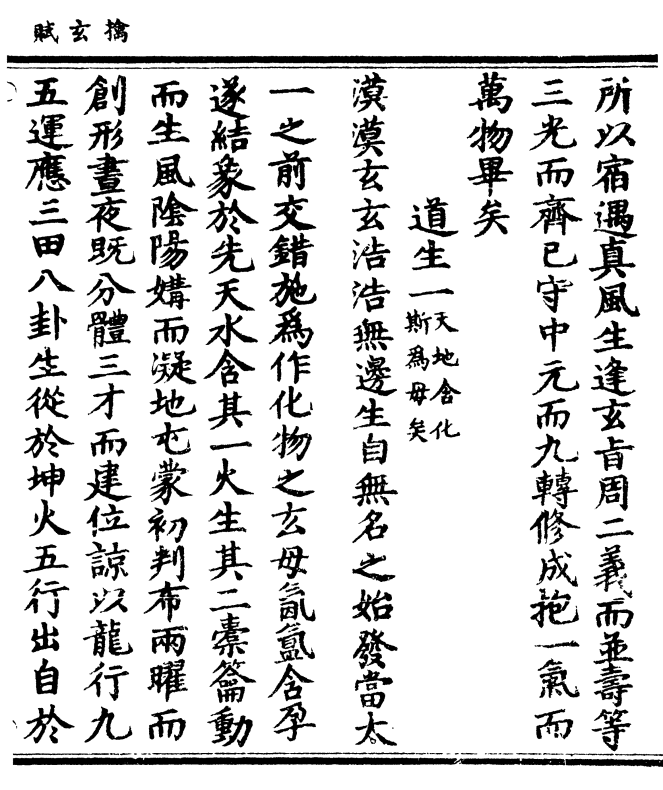 擒玄賦
所以宿遇真風生逢玄旨周二義而並壽等
三光而齊已守中元而九轉修成抱一氣而
萬物畢矣
道生一天地含化斯為母矣
漠漠玄玄浩浩無邊生自無名之始發當太
一之前交錯施為作化物之玄母氤氳含孕
遂結象於先天水含其一火生其二橐籥動
而生風陰陽媾而凝地屯蒙初判布兩曜而
創形晝夜既分體三才而建位諒以龍行九
五運應三田八卦生從於坤火五行出自於